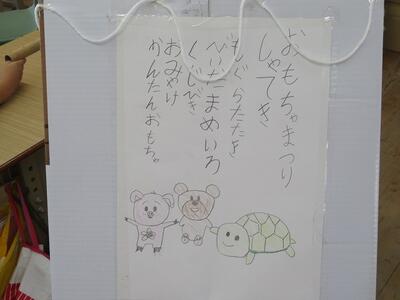 おもちゃまつり
しゃてき
もぐらたたき
びいだまめいろ
くじびき
おみやげ
かんたんおもちゃ